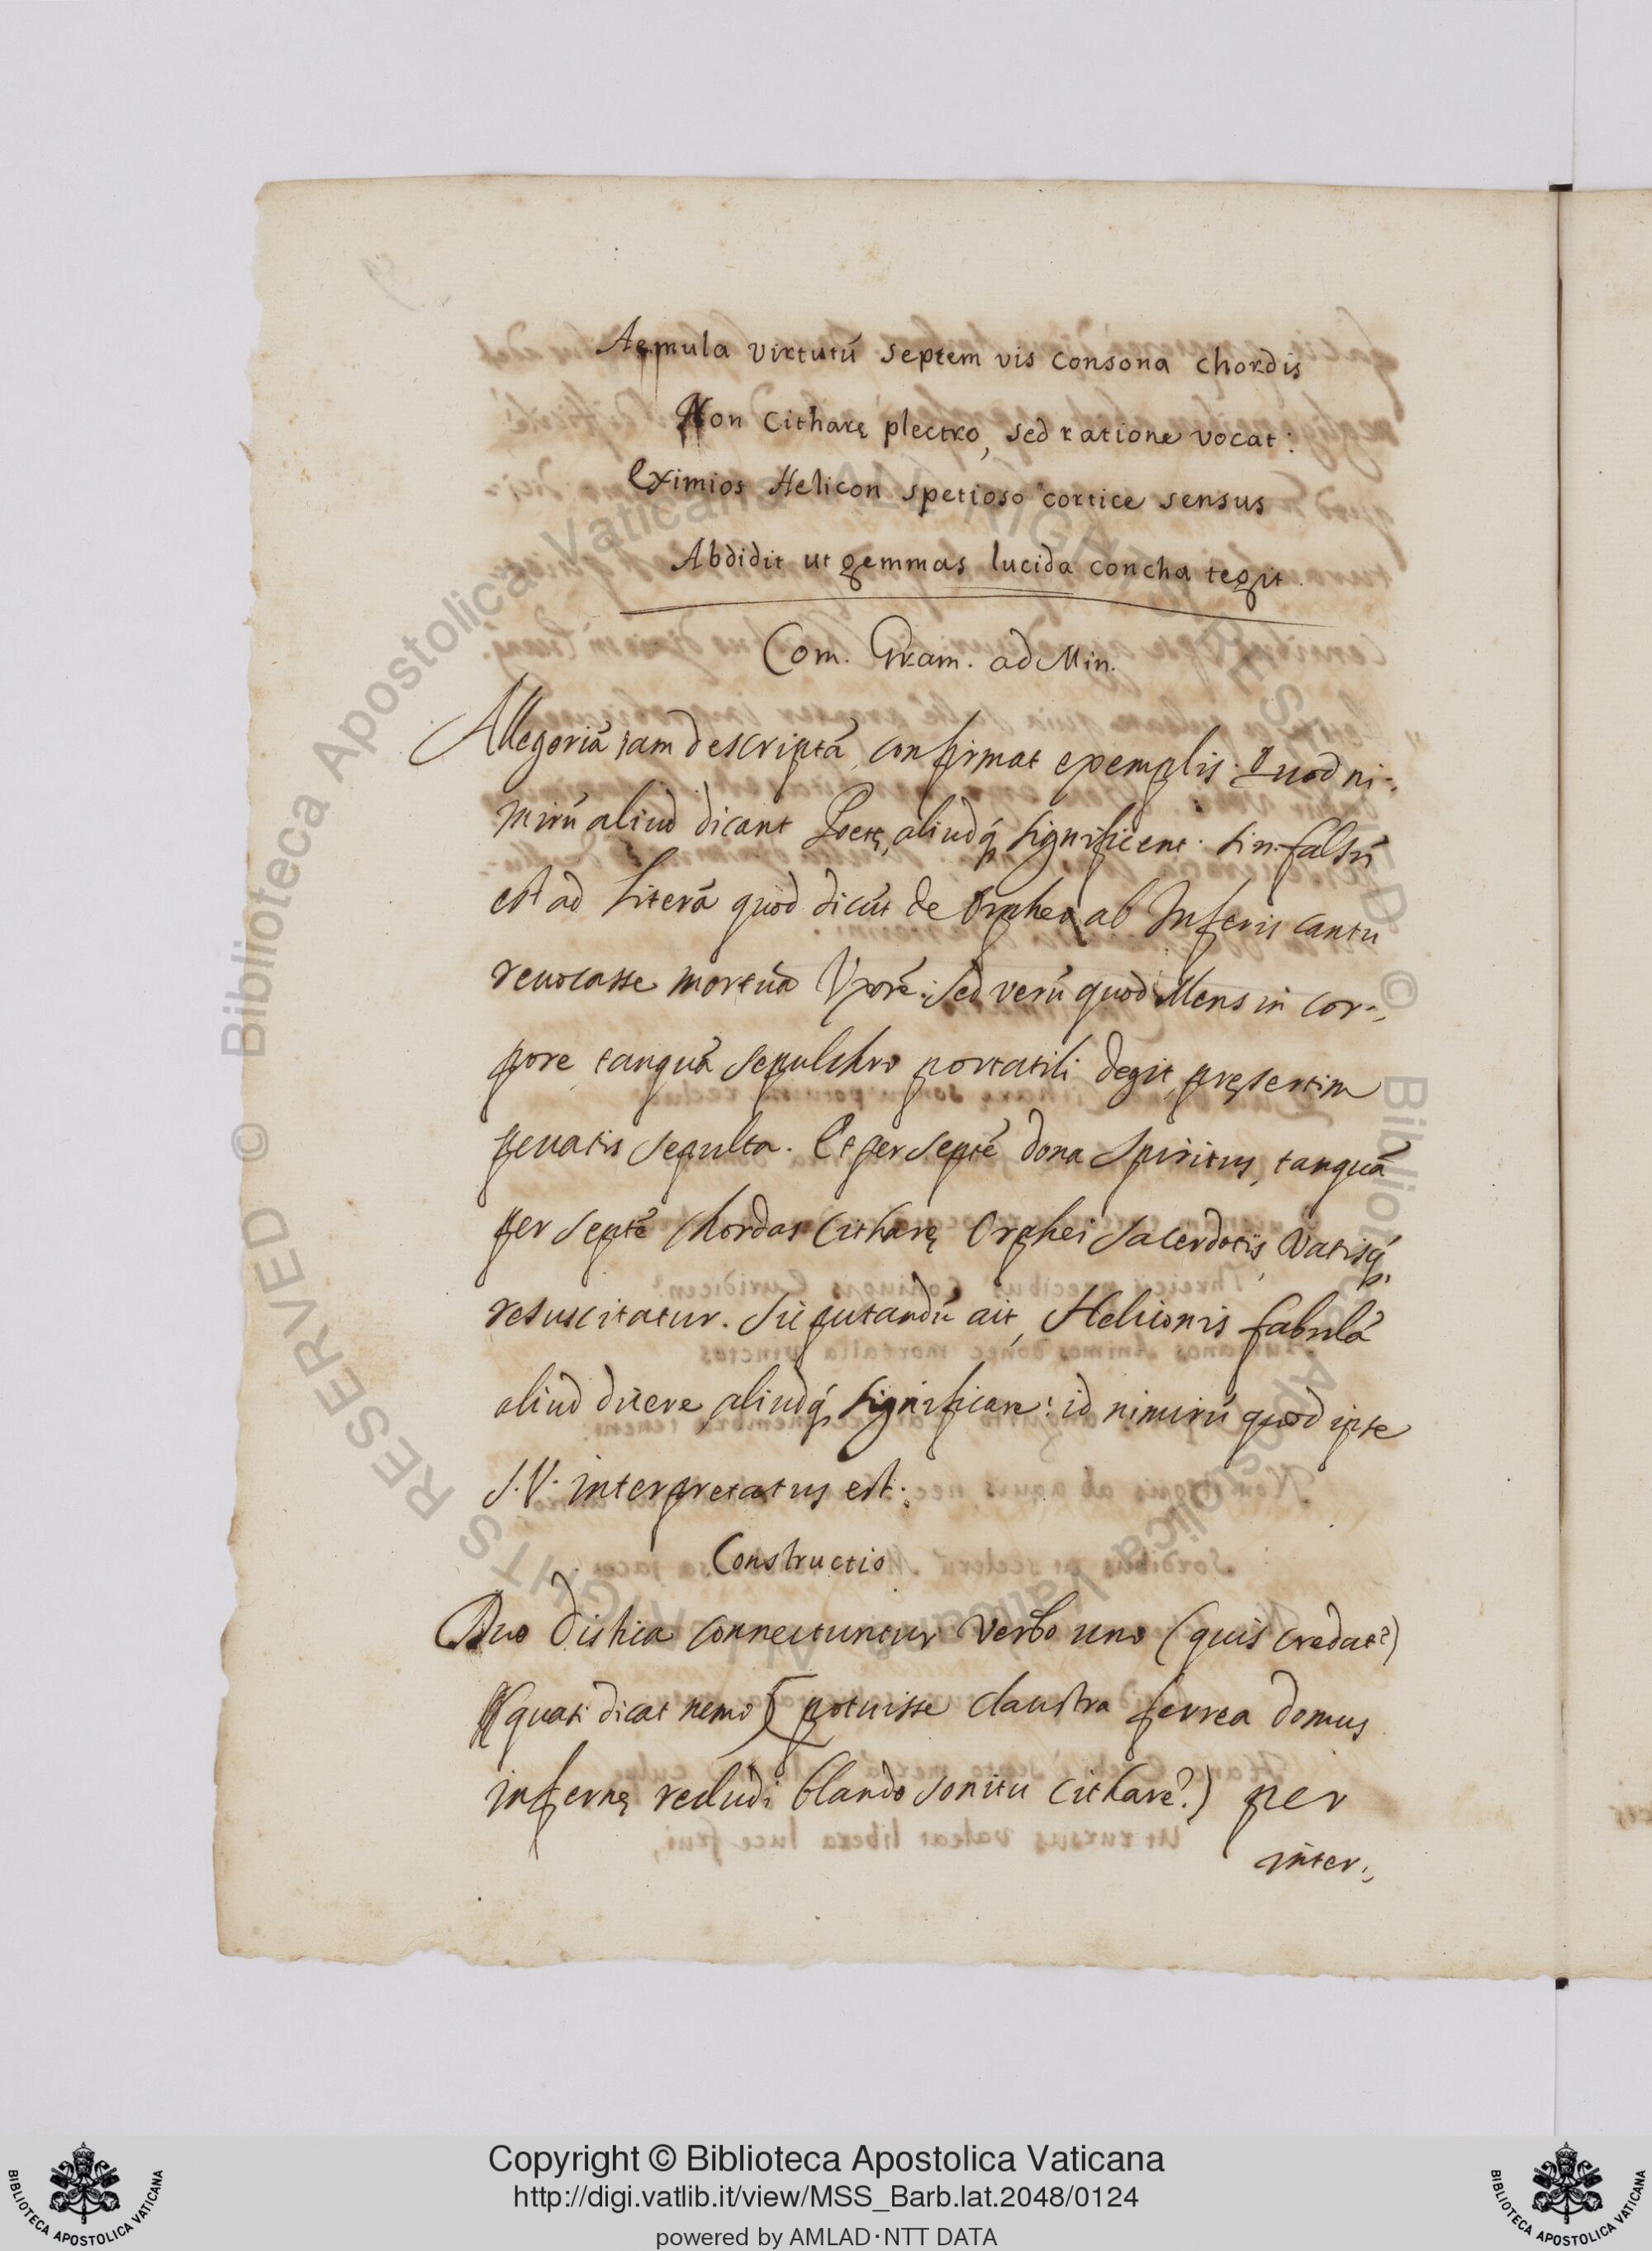 Aemula virtutũ septem vis consona chordis
Non Citharę plectro, sed ratione vocat:
Eximios Helicon spetioso cortice sensus
Abdidit ut gemmas lucida concha tegit.
Com. Gram. ad Min.
Allegoriã iam descriptã confirmat exemplis. Quod ni-
mirũ aliud dicant Poetę, aliudq́ significent. Sin. falsũ
est ad literã quod dicũt de Orpheo ab Inferis cantu
revocasse mortuã Uxorẽ: sed verũ quod Mens in cor-
pore tanquã sepulchro portatili degit, pręsertim
peccatis sepulta. Et per septẽ dona Spiritus, tanquã
per septẽ chordas Citharę Orphei Sacerdotis, Vatisq́
resuscitatur. Sic putandũ ait, Heliconis fabulã
aliud dicere aliudq́ significare: id nimirũ quod ipse
S.V. interpretatus est.
Constructio
Duo disticha connectuntur verbo uno (quis credat?)
(quasi dicat nemo) (potuisse claustra ferrea domus
infernę recludi blando sonitu Citharę?) per
inter-
Copyright © Biblioteca Apostolica Vaticana
http://digi.vatlib.it/view/MSS_Barb.lat.2048/0124
powered by AMLAD·NTT DATA
BIBLIOTECA APOSTOLICA VATICANA
BIBLIOTECA APOSTOLICA VATICANA
© Biblioteca Apostolica Vaticana ALL RIGHTS RESERVED © Biblioteca Apostolica Vaticana ALL RIGHTS RESERVED